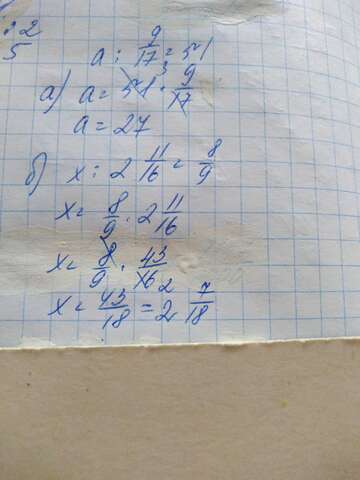 : 2/5
a : 9/17 = 51
а) a = 51 · 9/17 3
a = 27
б) x : 2 11/16 = 8/9
x = 8/9 · 2 11/16
x = 8/9 · 43/16 2
x = 43/18 = 2 7/18